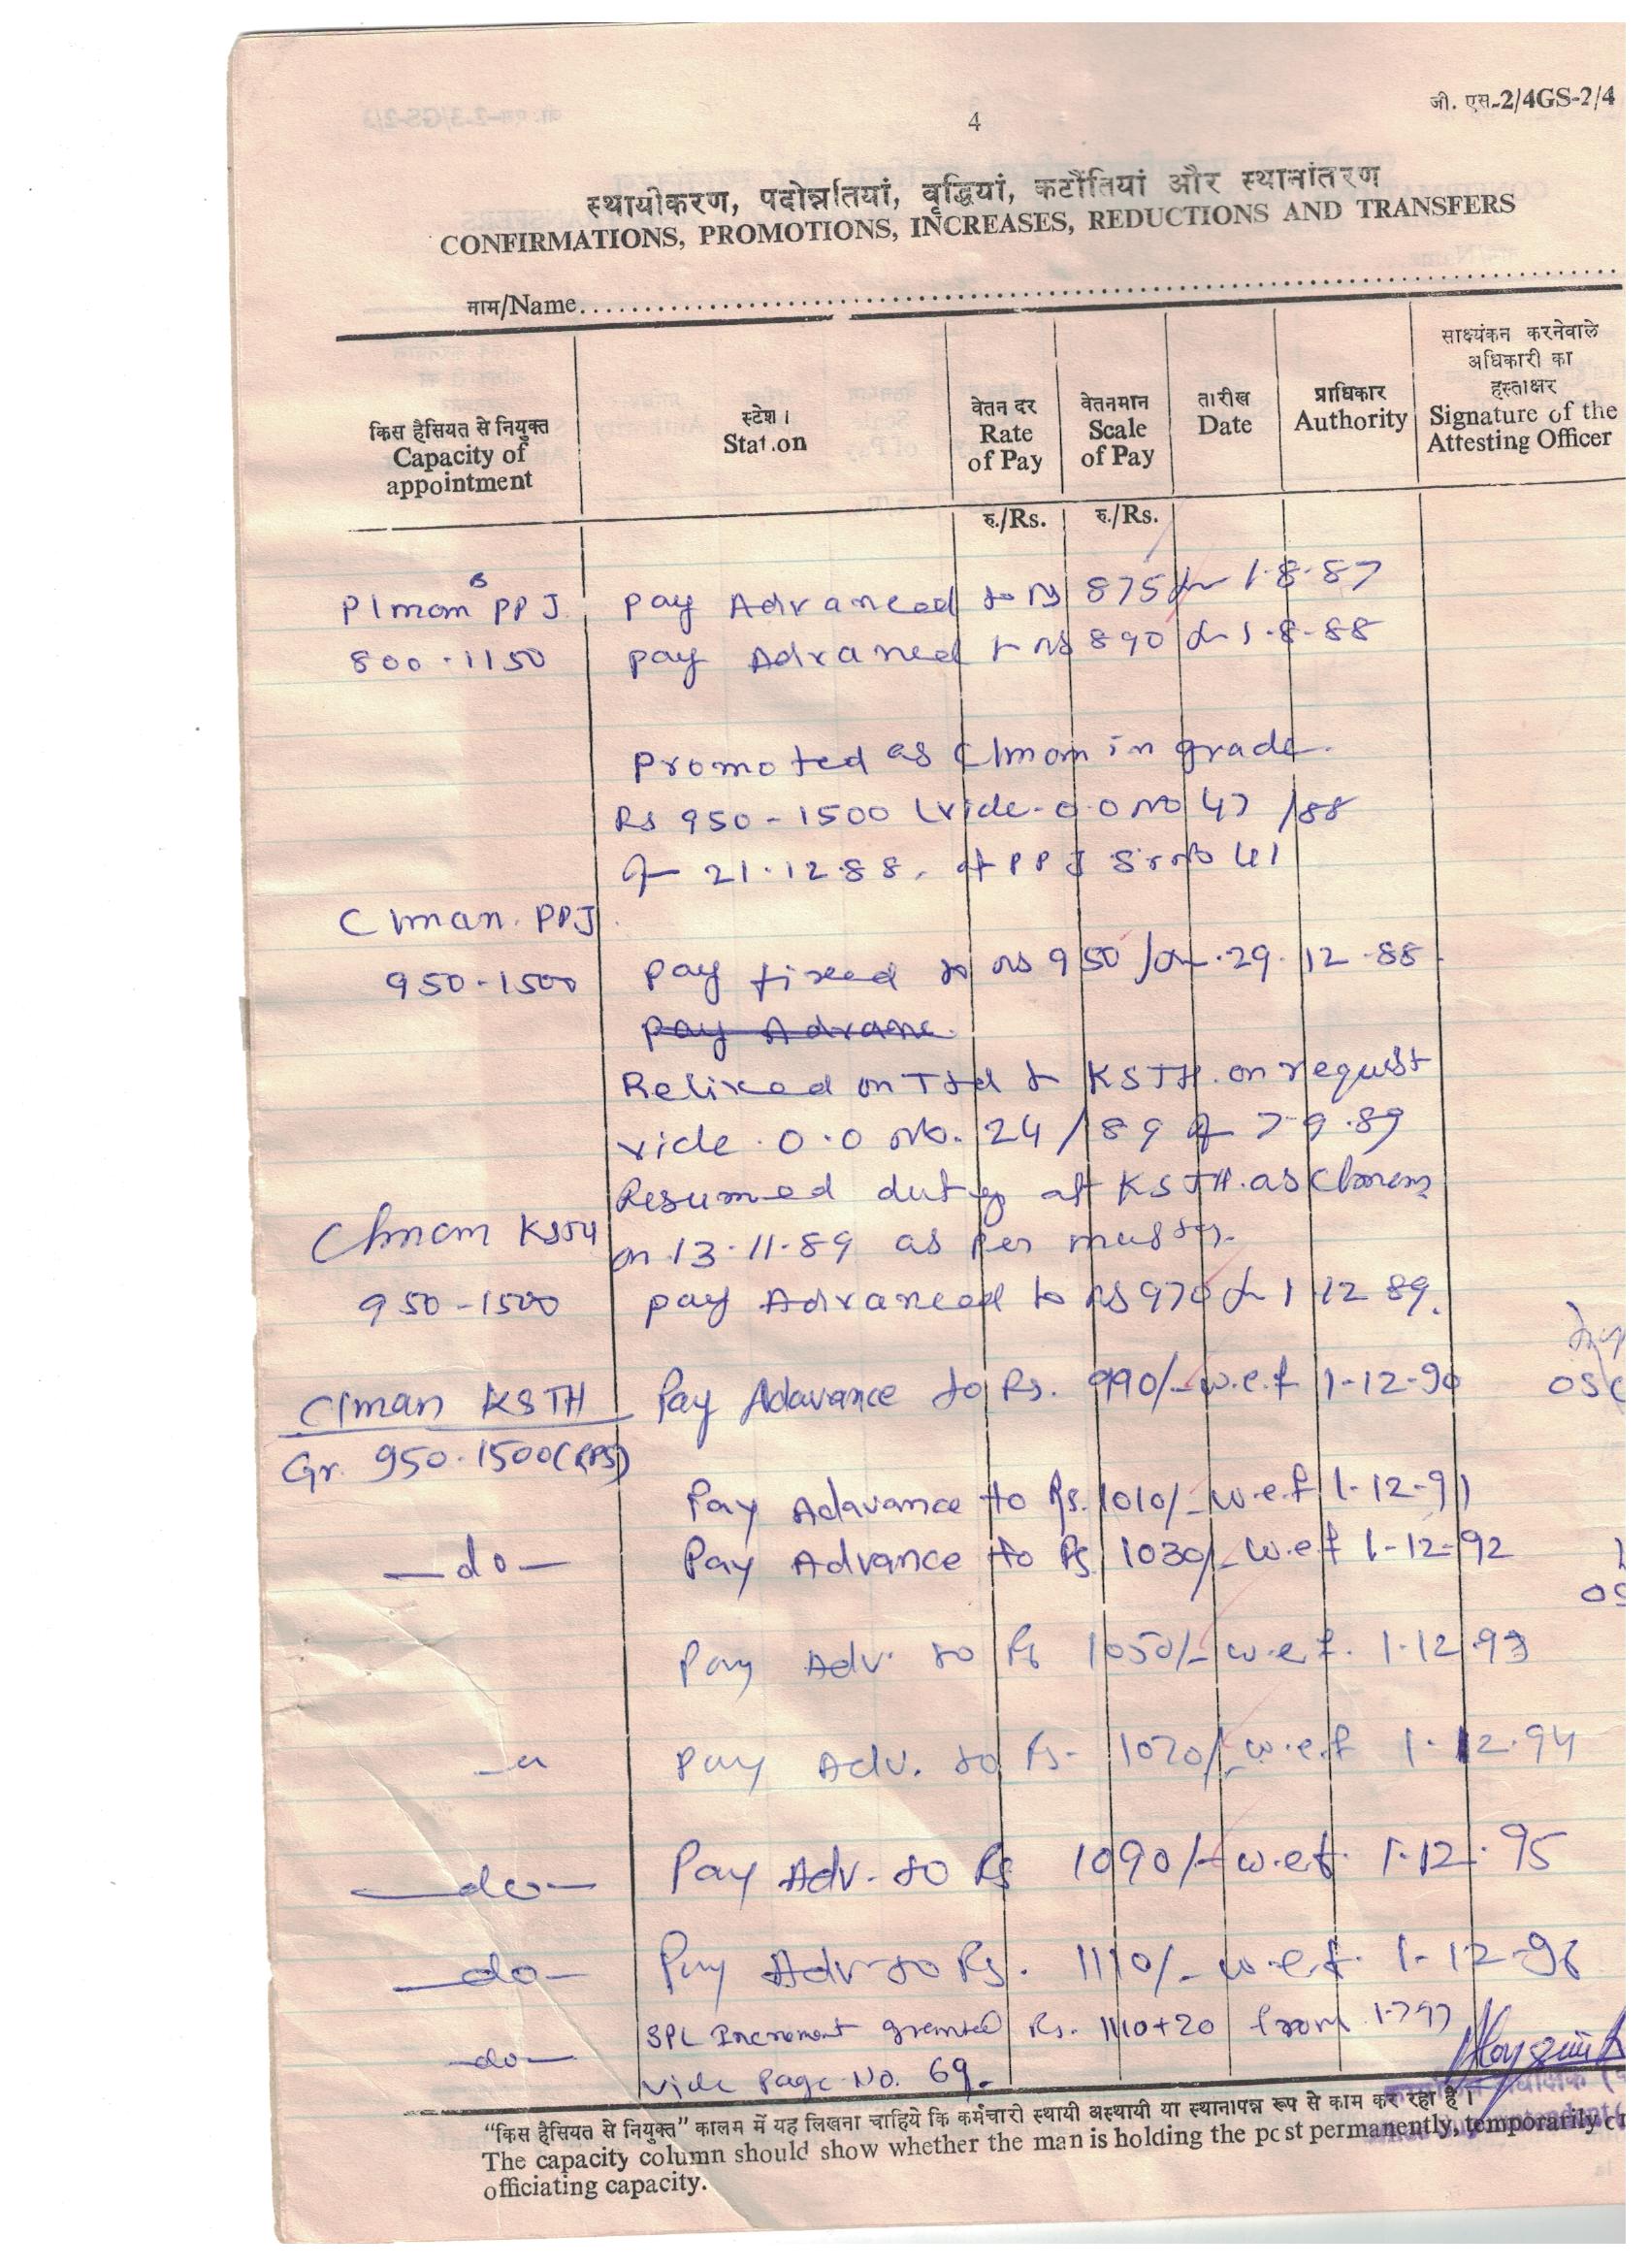 जी. एस.-2/4GS-2/4
4
स्थायीकरण, पदोन्नतियां, वृद्धियां, कटौतियां और स्थानांतरण
CONFIRMATIONS, PROMOTIONS, INCREASES, REDUCTIONS AND TRANSFERS
नाम/Name
किस हैसियत से नियुक्त
Capacity of
appointment
स्टेश।
Stat.on
वेतन दर
Rate
of Pay
वेतनमान
Scale
of Pay
तारीख
Date
प्राधिकार
Authority
साक्ष्यंकन करनेवाले
अधिकारी का
हस्ताक्षर
Signature of the
Attesting Officer
रु./Rs. रु./Rs.
PPJ pay Advanced to Rs 875 1-8-87
800-1150 pay Advanced Rs 890 1-8-88
Promoted as C/man in grade.
Rs 950-1500 vide O.O No 47/88
21.12.88. of PPJ Sr No 41
C/man. PPJ
950-1500 pay fixed to Rs 950/on 29.12.88
pay Advanc
on KSTH on request
vide O.O No. 24/89 7-9-89
Resumed duty at KSTH as
on 13.11.89 as per muster.
950-1500 pay Advanced to Rs 970 1 12 89.
C/man KSTH Pay Adavance to Rs. 990/- w.e.f 1-12-90
Gr. 950-1500(RPS)
Pay Adavance to Rs. 1010/- w.e.f 1-12-91
—do— Pay Advance to Rs 1030/- w.e.f 1-12-92
Pay Adv. to Rs 1050/- w.e.f. 1-12-93
Pay Adv. to Rs- 1070/- w.e.f 1-12-94
—do— Pay Adv. to Rs 1090/- w.e.f. 1-12-95
—do— Pay Adv to Rs. 1110/- w.e.f. 1-12-96
SPL Increment granted Rs. 1110+20 from 1-7-97
—do— vide Page No. 69.
“किस हैसियत से नियुक्त” कालम में यह लिखना चाहिये कि कर्मचारी स्थायी अस्थायी या स्थानापन्न रूप से काम कर रहा है।
The capacity column should show whether the man is holding the post permanently, temporarily
officiating capacity.